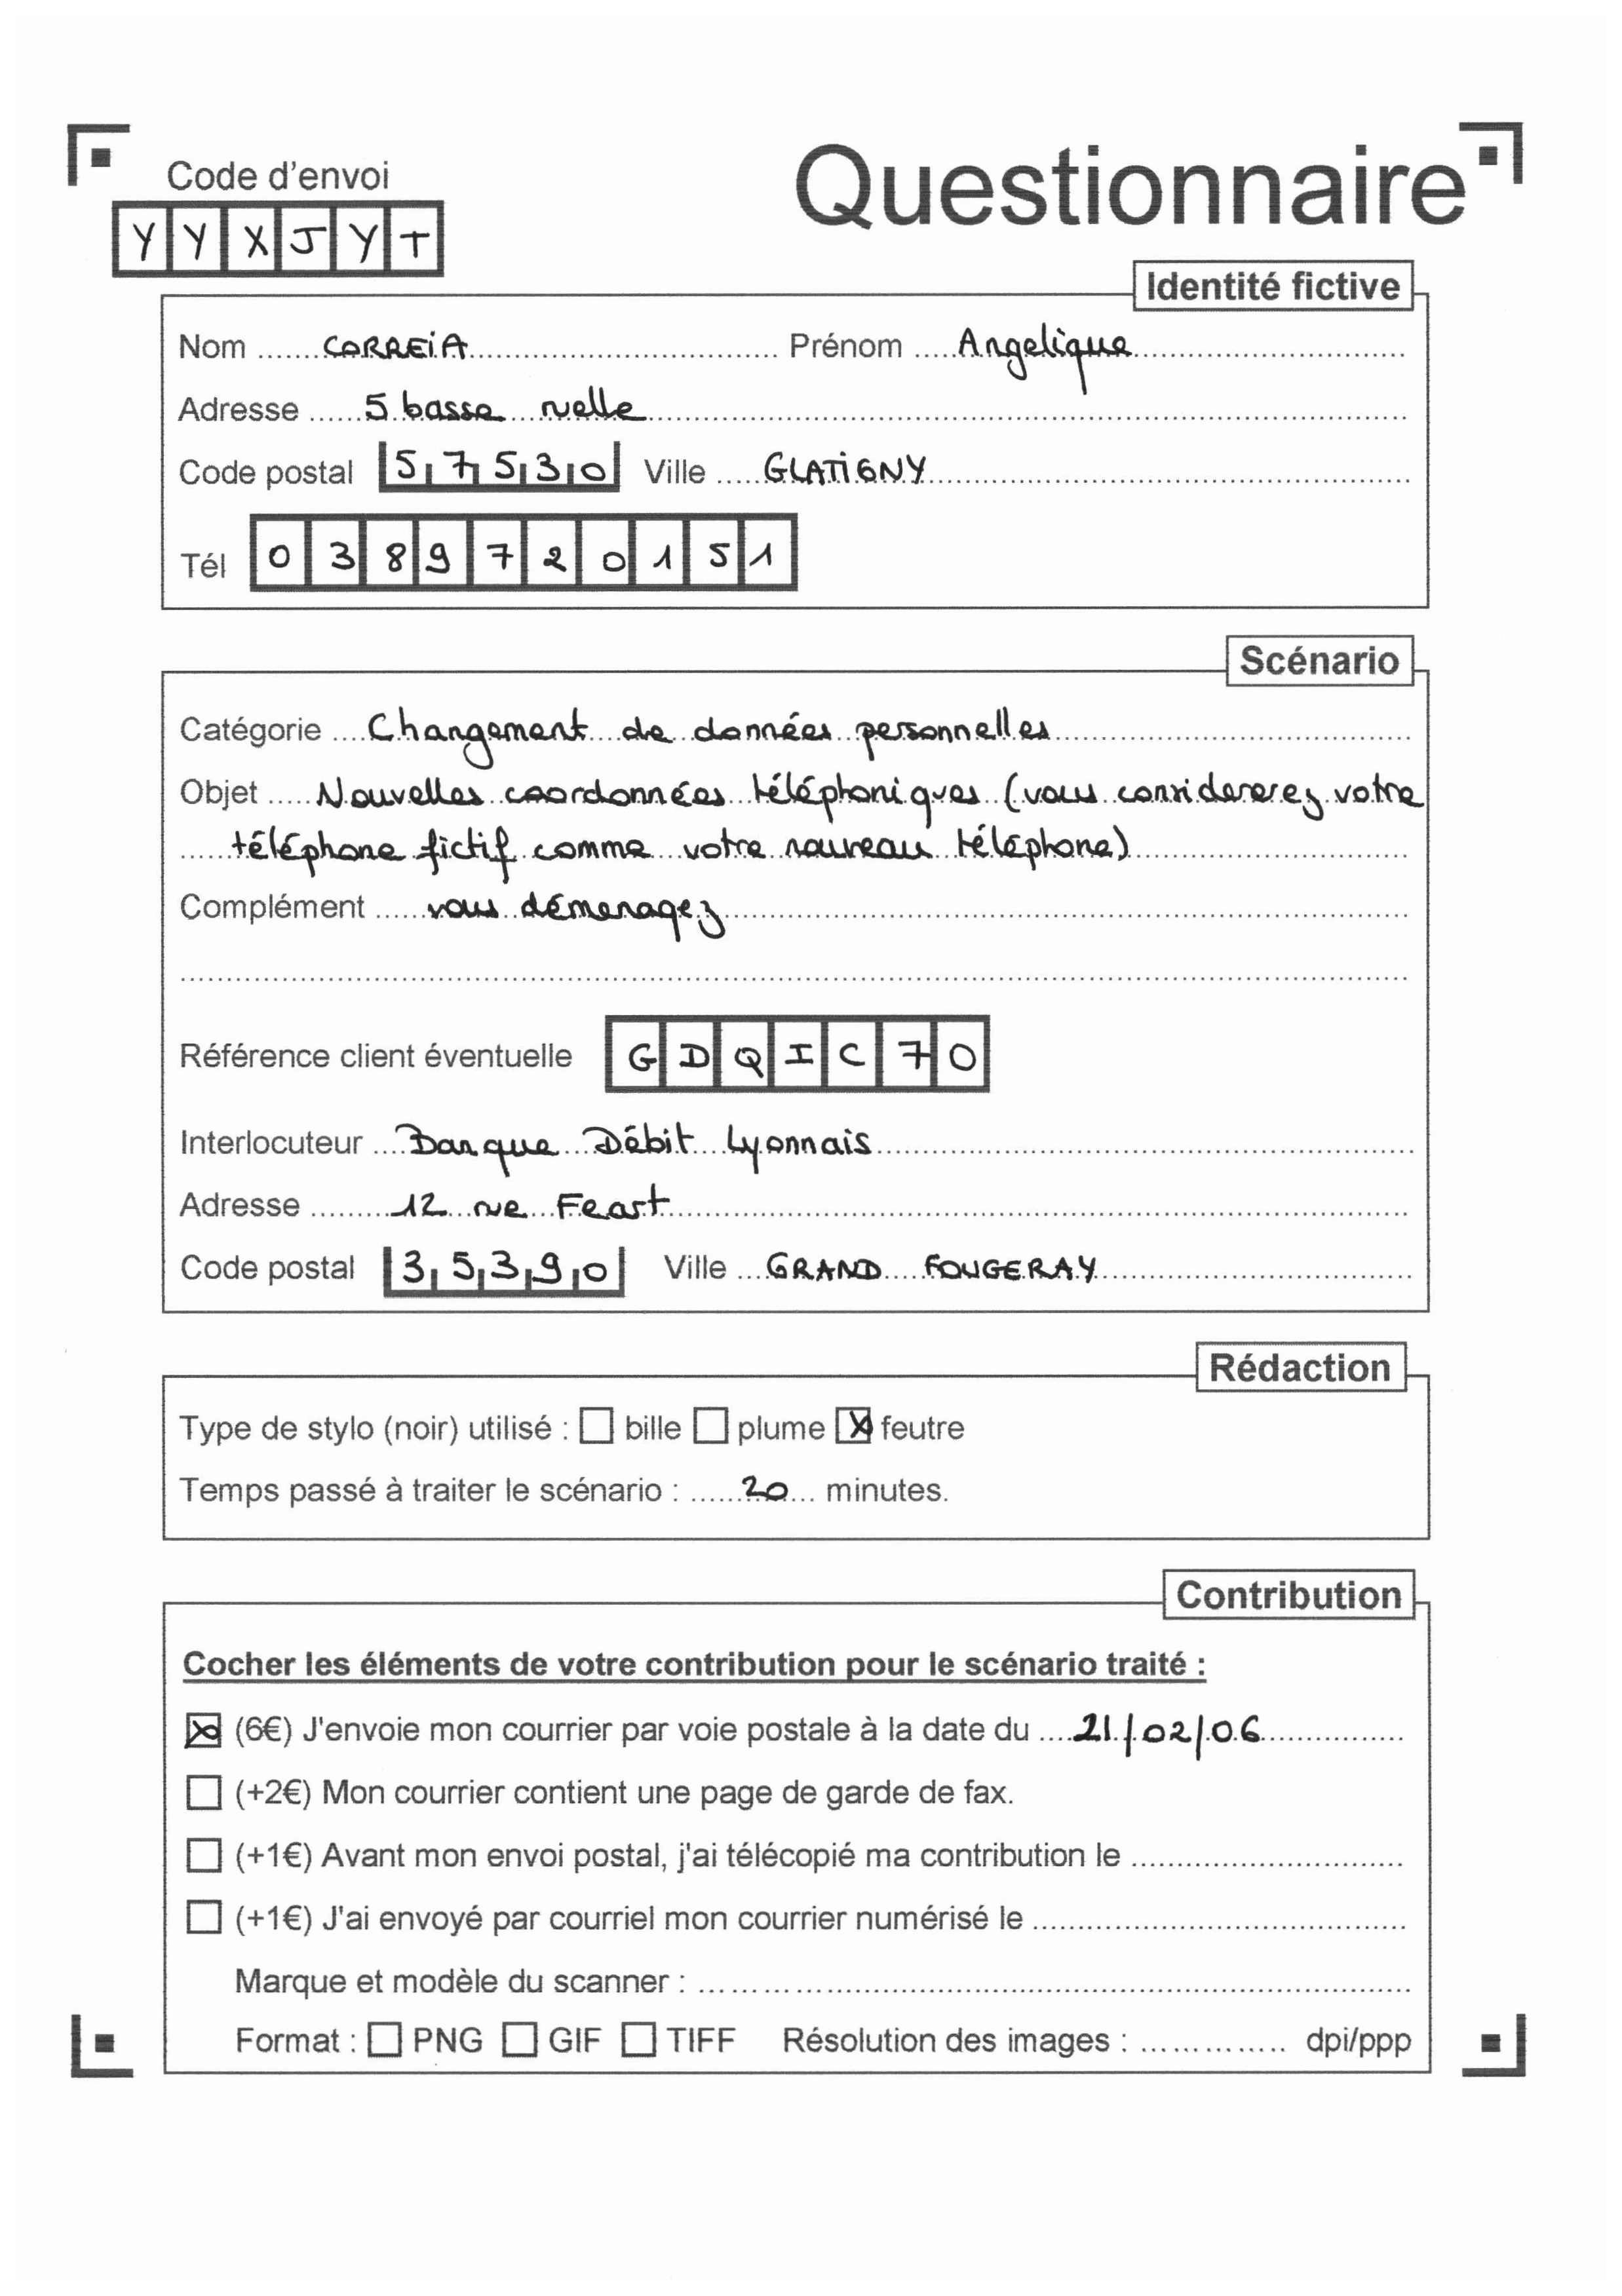 Code d'envoi
Questionnaire
YYXJYT
Identité fictive
Nom ....... CORREIA ....... Prénom ..... Angelique
Adresse ...... 5 basse ruelle
Code postal 57530 Ville ..... GLATIGNY
Tél 0389720151
Scénario
Catégorie .... Changement de données personnelles
Objet ..... Nouvelles coordonnées téléphoniques (vous considererez votre
téléphone fictif comme votre nouveau téléphone)
Complément ...... vous démenagez
Référence client éventuelle GDQIC70
Interlocuteur .... Banque Débit Lyonnais
Adresse ......... 12 rue Feart
Code postal 35390 Ville .... GRAND FOUGERAY
Rédaction
Type de stylo (noir) utilisé : ☐ bille ☐ plume ☒ feutre
Temps passé à traiter le scénario : ...... 20 ... minutes.
Contribution
Cocher les éléments de votre contribution pour le scénario traité :
☒ (6€) J'envoie mon courrier par voie postale à la date du .... 21/02/06
☐ (+2€) Mon courrier contient une page de garde de fax.
☐ (+1€) Avant mon envoi postal, j'ai télécopié ma contribution le ..............
☐ (+1€) J'ai envoyé par courriel mon courrier numérisé le ..............
Marque et modèle du scanner : ..............
Format : ☐ PNG ☐ GIF ☐ TIFF Résolution des images : .............. dpi/ppp